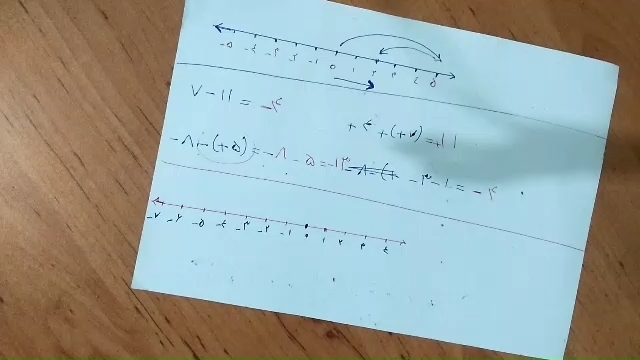 -۵ -۴ -۳ -۲ -۱ ۰ ۱ ۲ ۳ ۴ ۵
۷ - ۱۱ = -۴
+۴ + (+۷) = +۱۱
-۸ - (+۵) = -۸ - ۵ = -۱۳
-۳ - ۱ = -۴
-۷ -۶ -۵ -۴ -۳ -۲ -۱ ۰ ۱ ۲ ۳ ۴